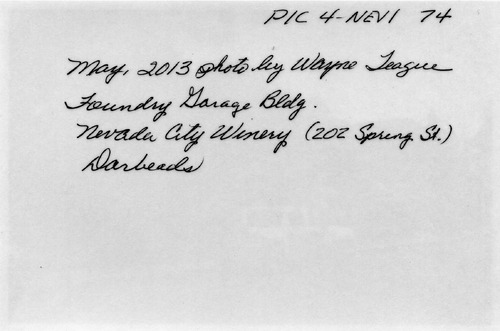 PIC 4-NEV1 74
May, 2013 photo by Wayne League
Foundry Garage Bldg.
Nevada City Winery (202 Spring St.)
Darbeads